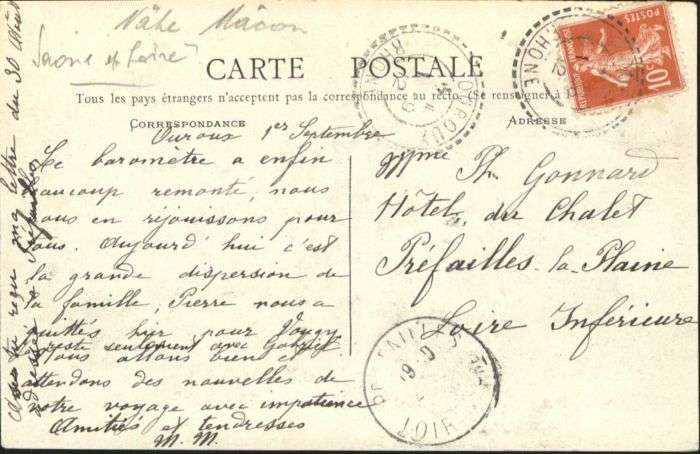 Nähe Mâcon
Saone et Loire
CARTE POSTALE
Tous les pays étrangers n'acceptent pas la correspondance au recto. (Se renseigner à
CORRESPONDANCE
ADRESSE
Ouroux 1er Septembre
Le baromètre a enfin
beaucoup remonté, nous
nous en réjouissons pour
vous. Aujourd'hui c'est
la grande dispersion de
la famille, Pierre nous a
quittés hier pour Vougy
reste seulement avec Gabriel
Nous allons bien et
attendons des nouvelles de
votre voyage avec impatience
Amitiés et tendresses
M. M.
reçu ma lettre du 30 Août
adressée
Mme Ph Gonnard
Hôtel du Chalet
Préfailles-la-Plaine
Loire Inférieure
OUROUX
RHONE
POSTES
10c
PREFAILLES
LOIRE